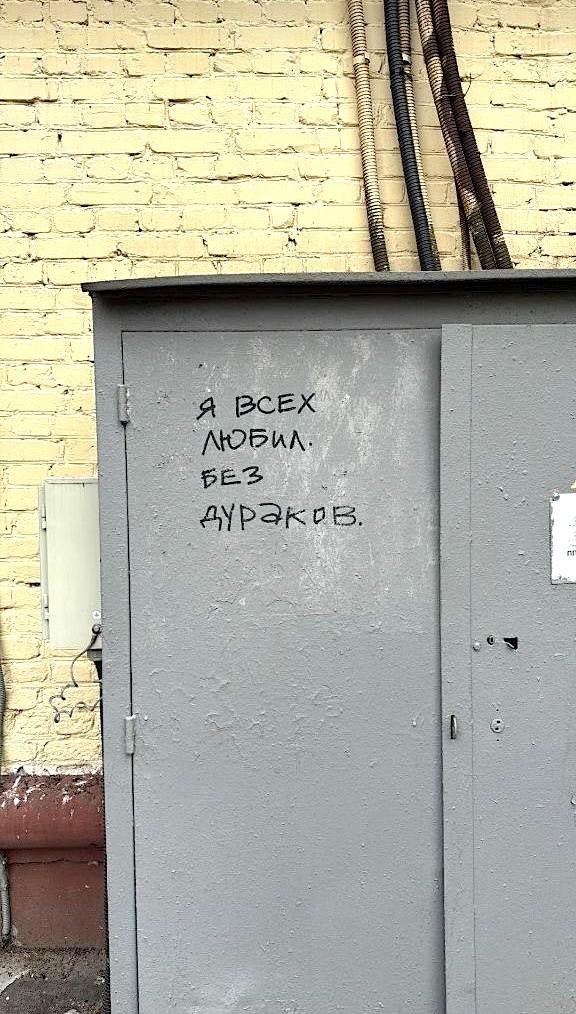 Я ВСЕХ
ЛЮБИЛ.
БЕЗ
ДУРАКОВ.